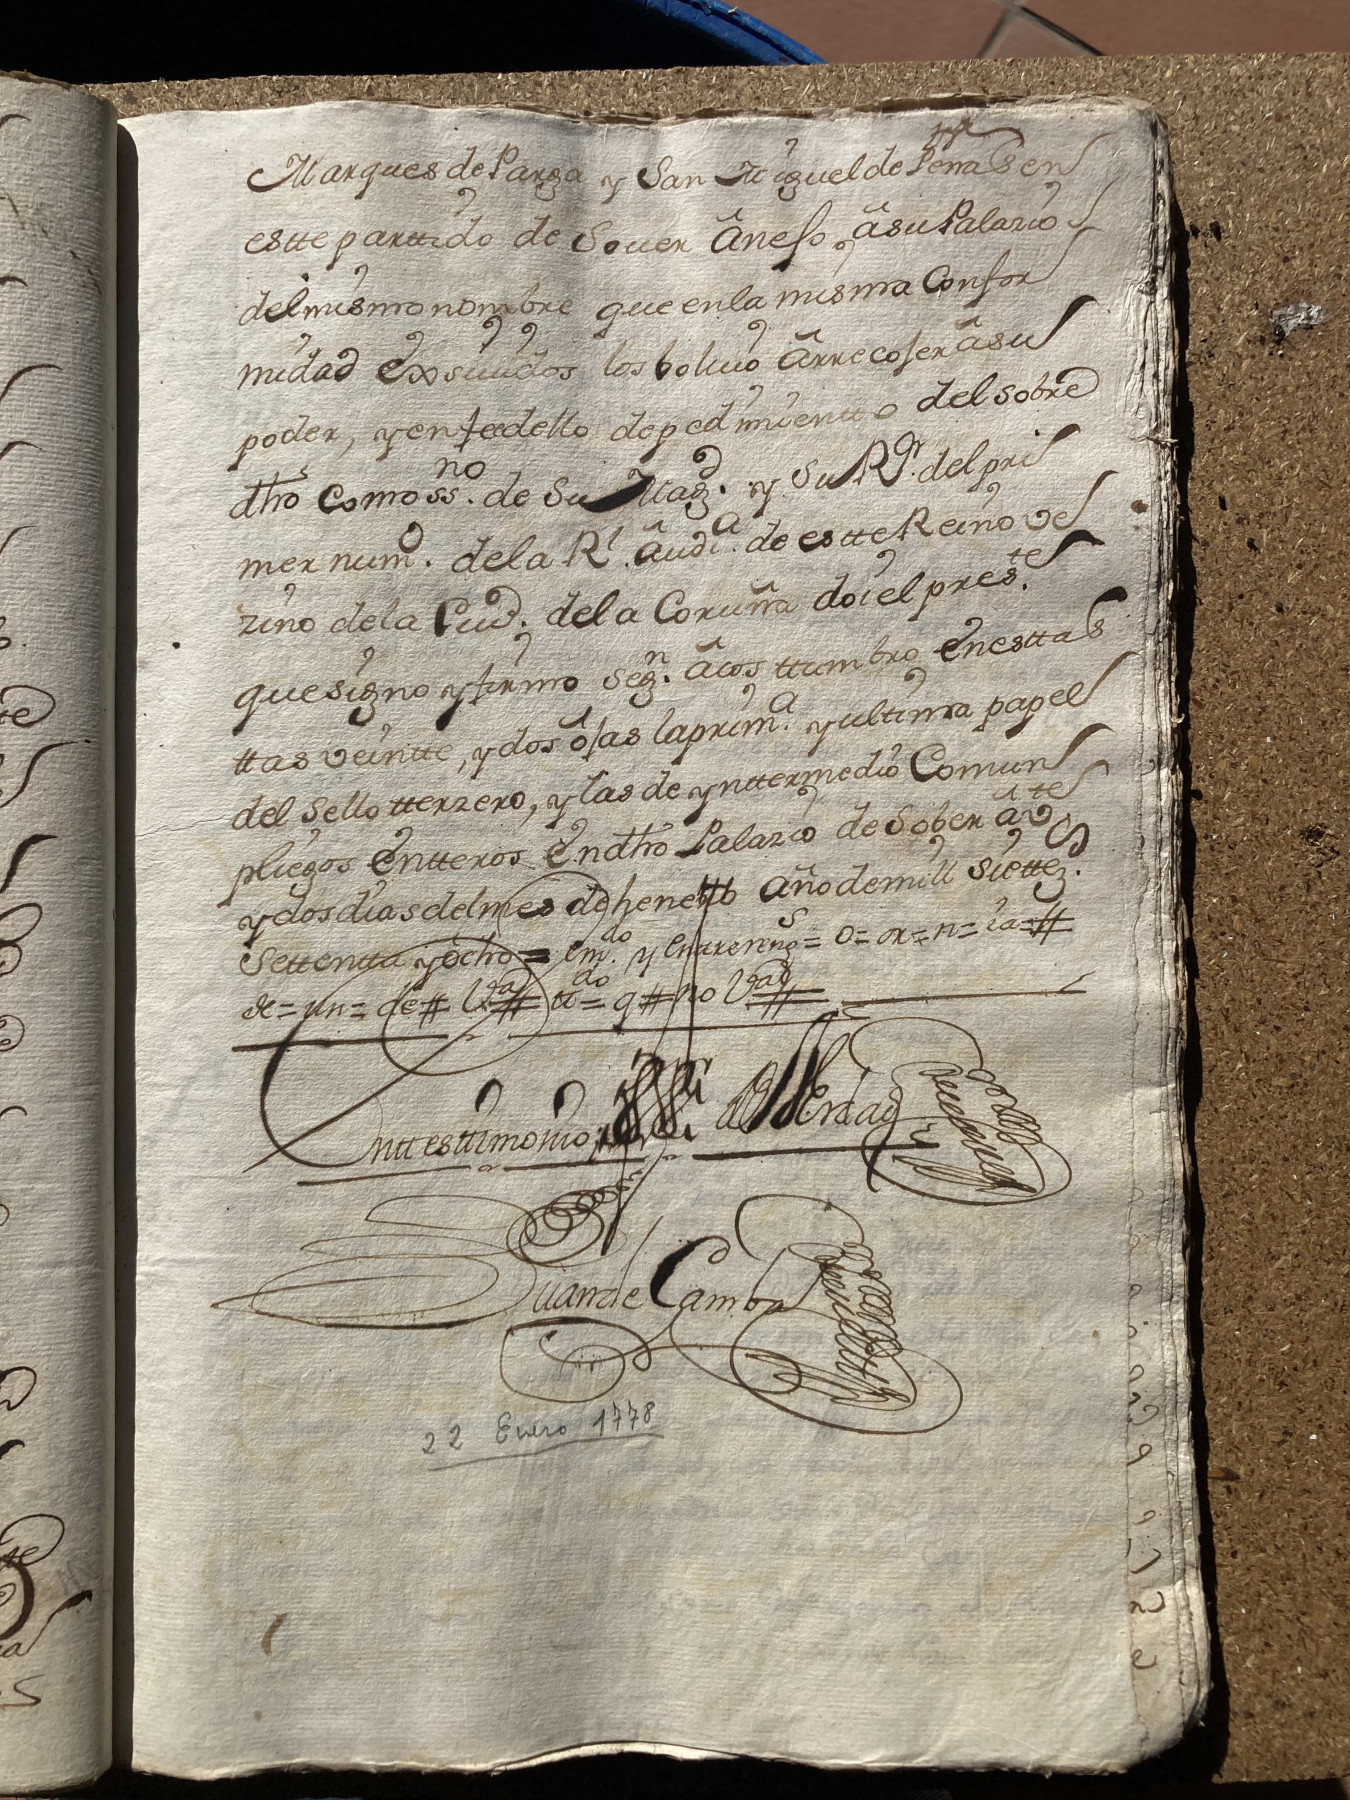 Marques de Parga y San Miguel de Penas en
estte parttido de Sover Anejo, â su Palazio
del mismo nombre que en la misma Confor
midad Exsividos los bolvió â rrecojer â su
poder, y en fee dello de pedimientto del sobre
dho como ssno. de Su Magd. y Su Rr. del pri
mer numo. de la Rl. Audia. de estte Reino ve
zino de la Ciud. de la Coruña doi el preste.
que signo y firmo segn. âcosttumbro En esttas
ttas veintte, y dos ôjas la prima. y ulttima papel
del Sello tterzero, y las de ynttermedio Comun
pliegos Entteros En dho Palazio de Sober â vte
y dos dias del mes de henero año de mill Siettezs.
Settentta y ocho = Emdo. y Entrerengs = o = or = n = ia = #
er = un = de # Va # ttdo = q # no Vas #
En testtimonio de Verdad
Juan de Camba
22 Enero 1778